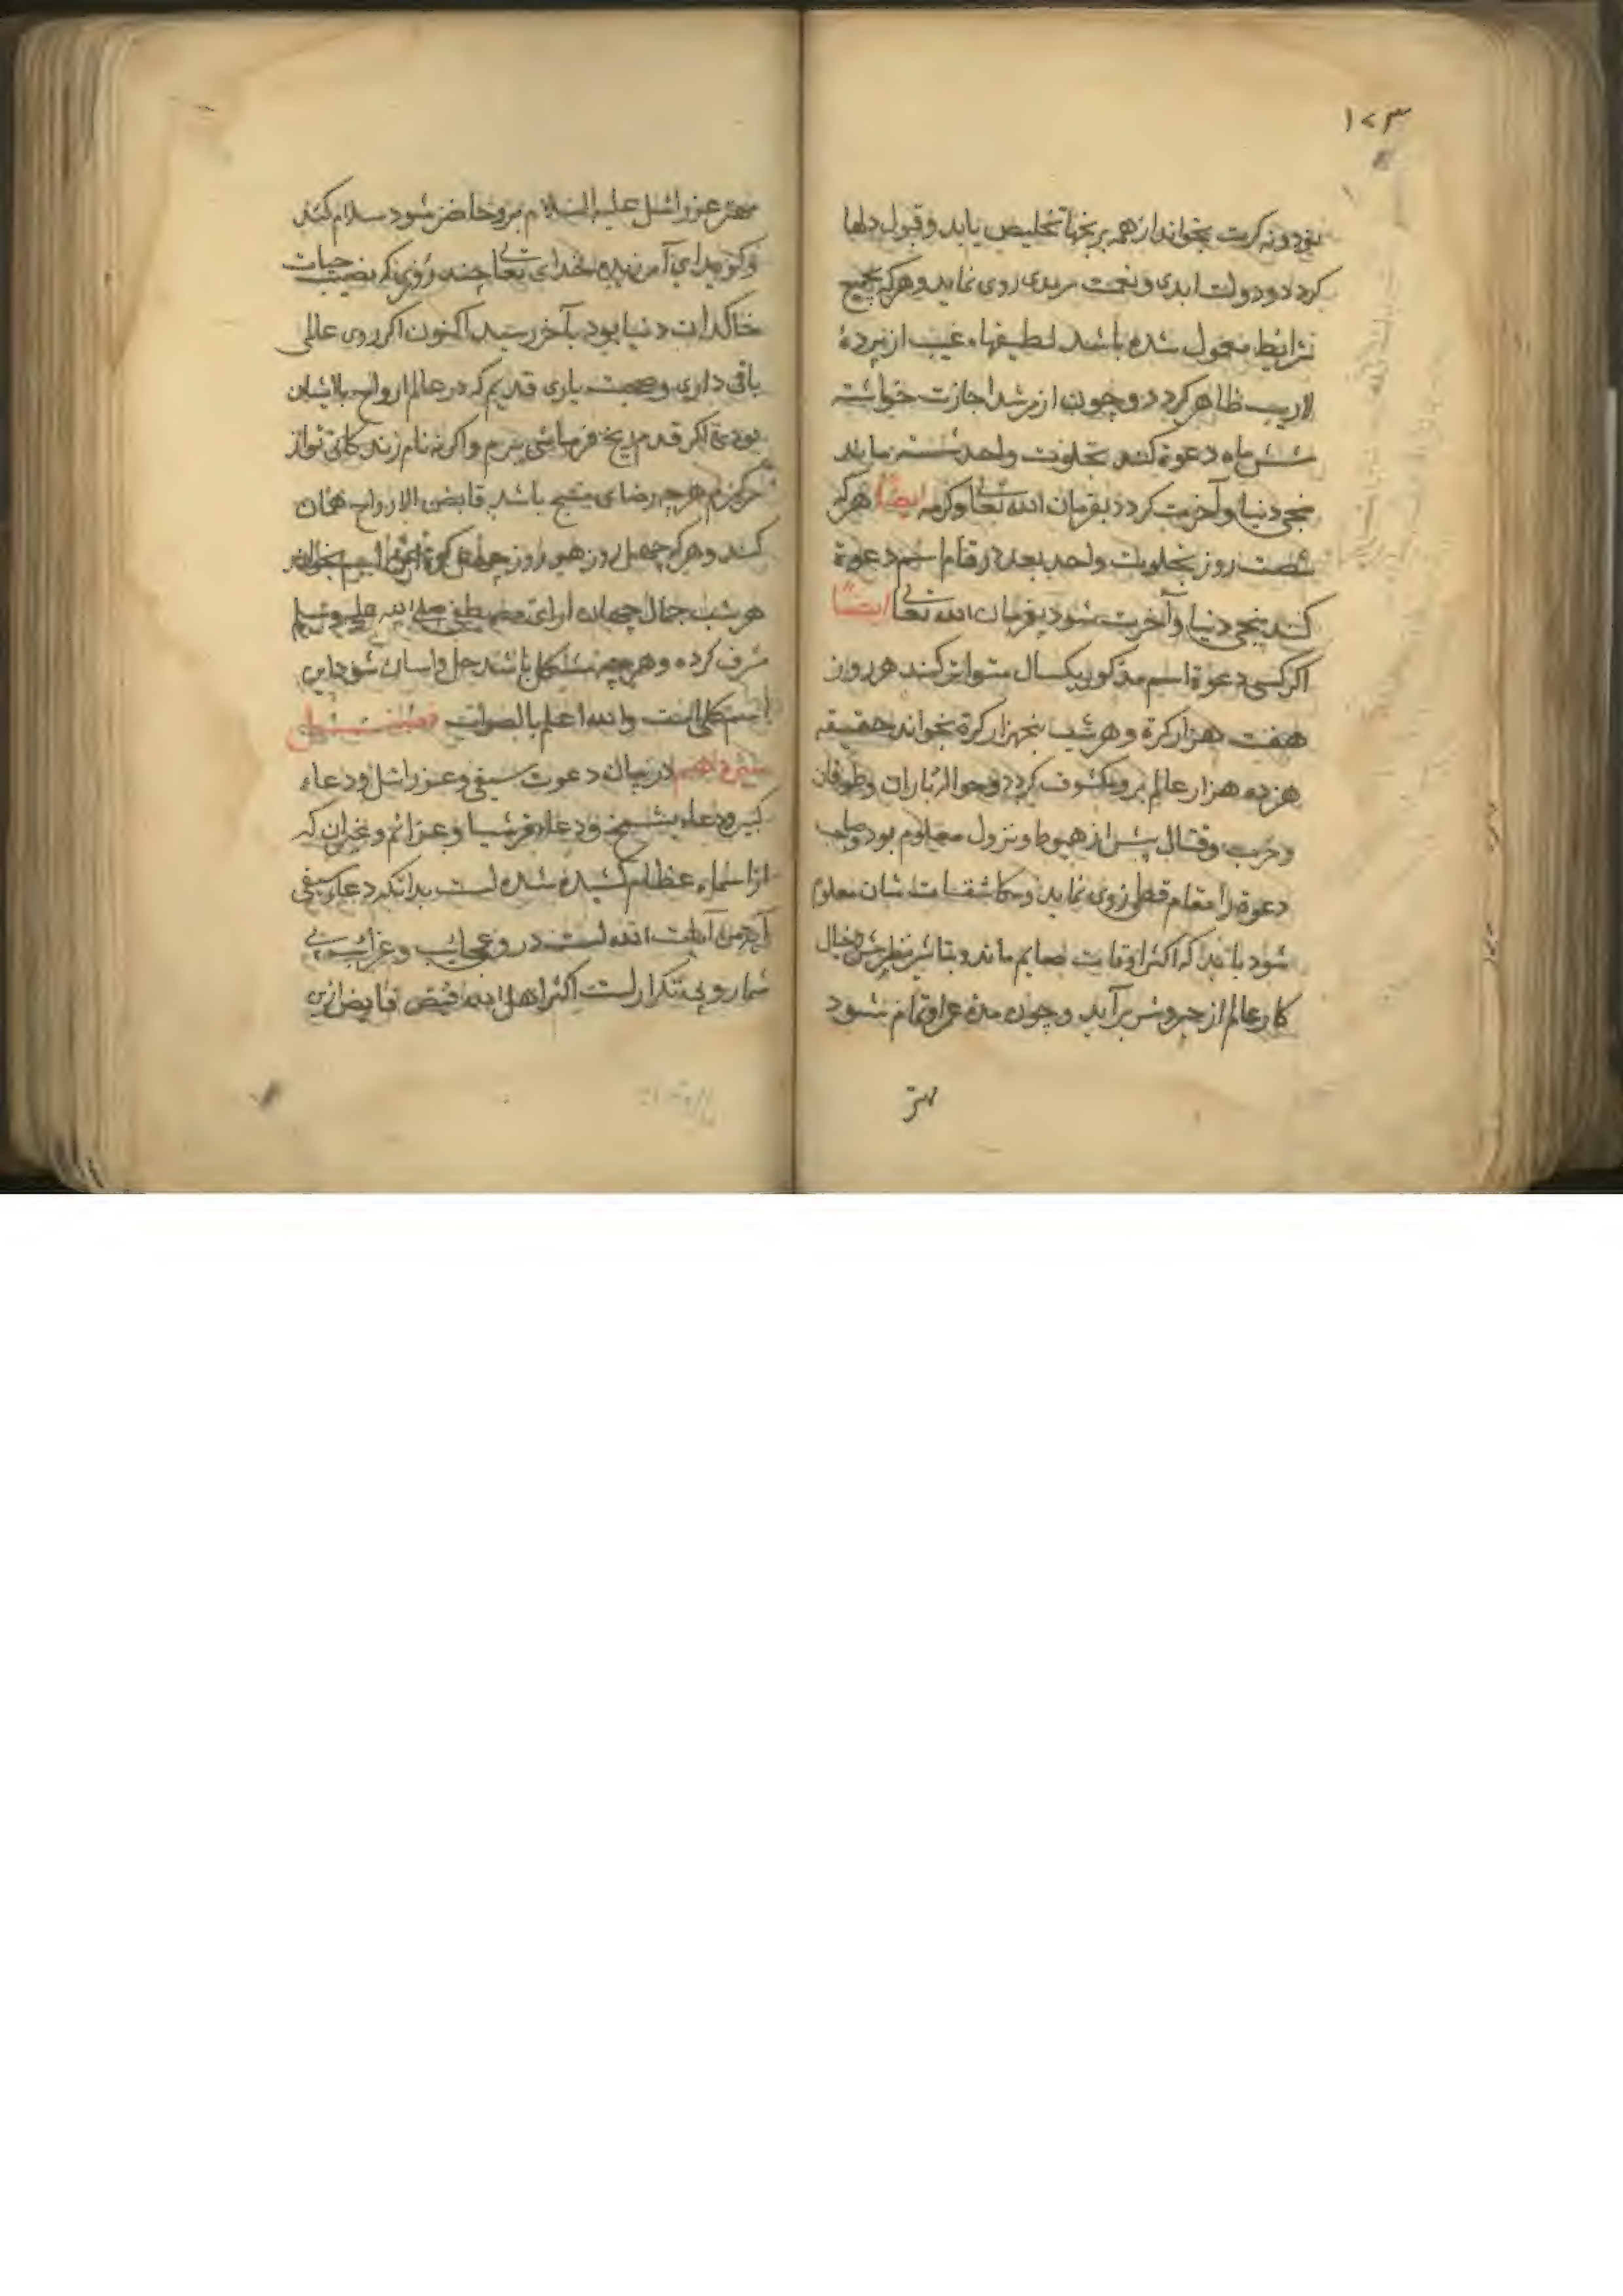 ۱۷۳
نود و نه کرت بخواند از همه برنجهاء تخلیص یابد و قبول دلها
کردد و دولت ابدی و نعمت سرمدی روی نماید و هرکه بجمیع
شرایط معمول شده باشد لطیفهاء غیب از پردهٔ
لاریب ظاهر کردد و چون از مرشد اجازت خواسته
شش ماه دعوة کند بخلوت واحد نشسته بیابد
نجی دنیا و آخرت کردد بفرمان الله تعالی و کرمه ایضا هرکه
شصت روز بخلوت واحد بعدد ارقام اسم دعوة
کند نجی دنیا و آخرت شود بفرمان الله تعالی ایضا
اکر کسی دعوة اسم مذکور یکسال متواتر کند هر روز
هفت هزار کرة و هر شب پنجهزار کرة بخواند حقیقه
هژده هزار عالم برو مکشوف کردد و احوال باران و طوفان
و حرب و قتال پیش از هبوط و نزول معلوم بود و صاحب
دعوة را مقام قطبی روی نماید و مکاشفات شان معلوم
شود باید که اکثر اوقات صایم ماند و بتاثیر نظرش
کار عالم از جوشش برآید و چون مدة عمر او تمام شود
مهتر
مهتر عزرائیل علیه السلام برو حاضر شود سلام کند
و کوید ای آمرزیده خدای تعالی چند روزی که نصیب حیات
خاکدان دنیا بود بآخر رسید اکنون اکر روی عالی
باقی داری و صحبت یاری قدیم که در عالم ارواح با ایشان
بودی اکر قدم رنجه فرمایی ببرم و اکر نه نام زندکانی تو از
سر کیرم هرچه رضای شیخ باشد قابض الارواح همان
کند و هرکه چهل روز هر روز چهل کرة این اسم بخواند
هر شب جمال جهان ارای مصطفی صلی الله علیه وسلم
مشرف کردد و هرچه مشکل باشد حل و اسان شود این
اسم کلی است والله اعلم بالصواب فصل
در بیان دعوت سیفی و عزرائیل و دعاء
کبیر و دعاء بشمخ و دعاء قرشیا و عزائم و غیر آن که
از اسماء عظام کشیده شده است بدانکه دعاء سیفی
آیة من آیات الله است درو عجایب و غرائب بی
شمار و بی تکرار است اکثر اهل الله فیض فایض ازین